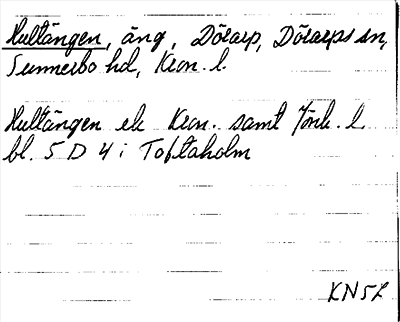 Hultängen, äng, Dörarp, Dörarps sn,
Sunnerbo hd, Kron. l.
Hultängen ek Kron. samt Jönk. l.
bl. 5 D 4 i Toftaholm
KN52